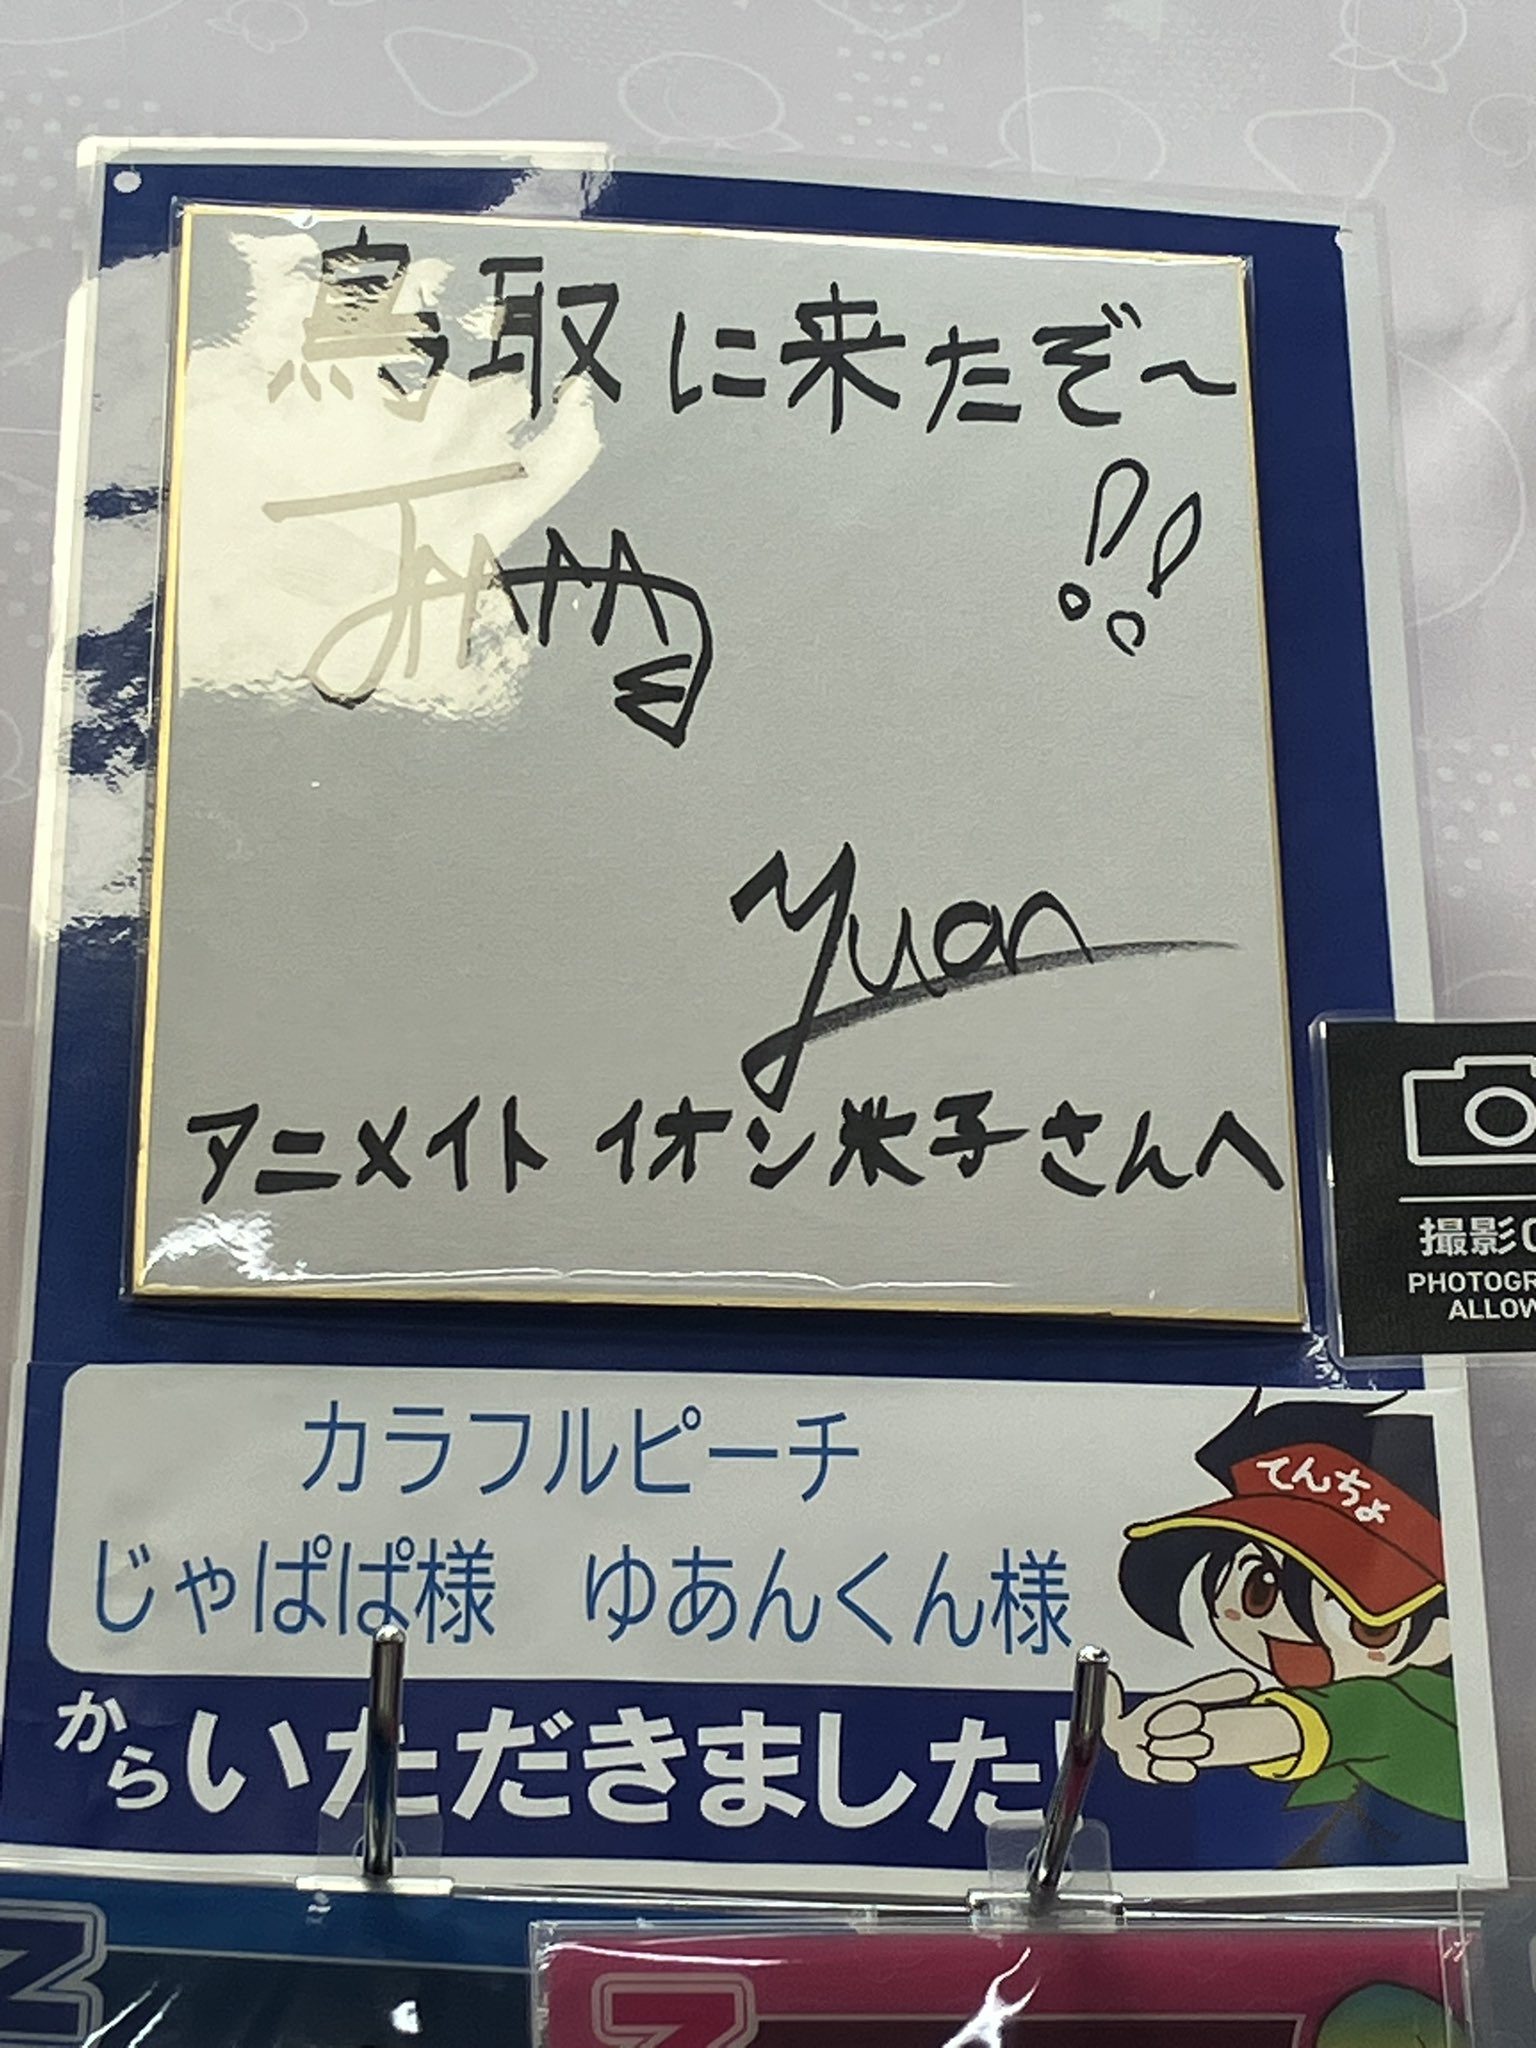 鳥取に来たぞ〜
!!
yuan
アニメイト イオン米子さんへ
撮影
PHOTOGR
ALLOW
カラフルピーチ
じゃぱぱ様 ゆあんくん様
てんちょ
からいただきました!